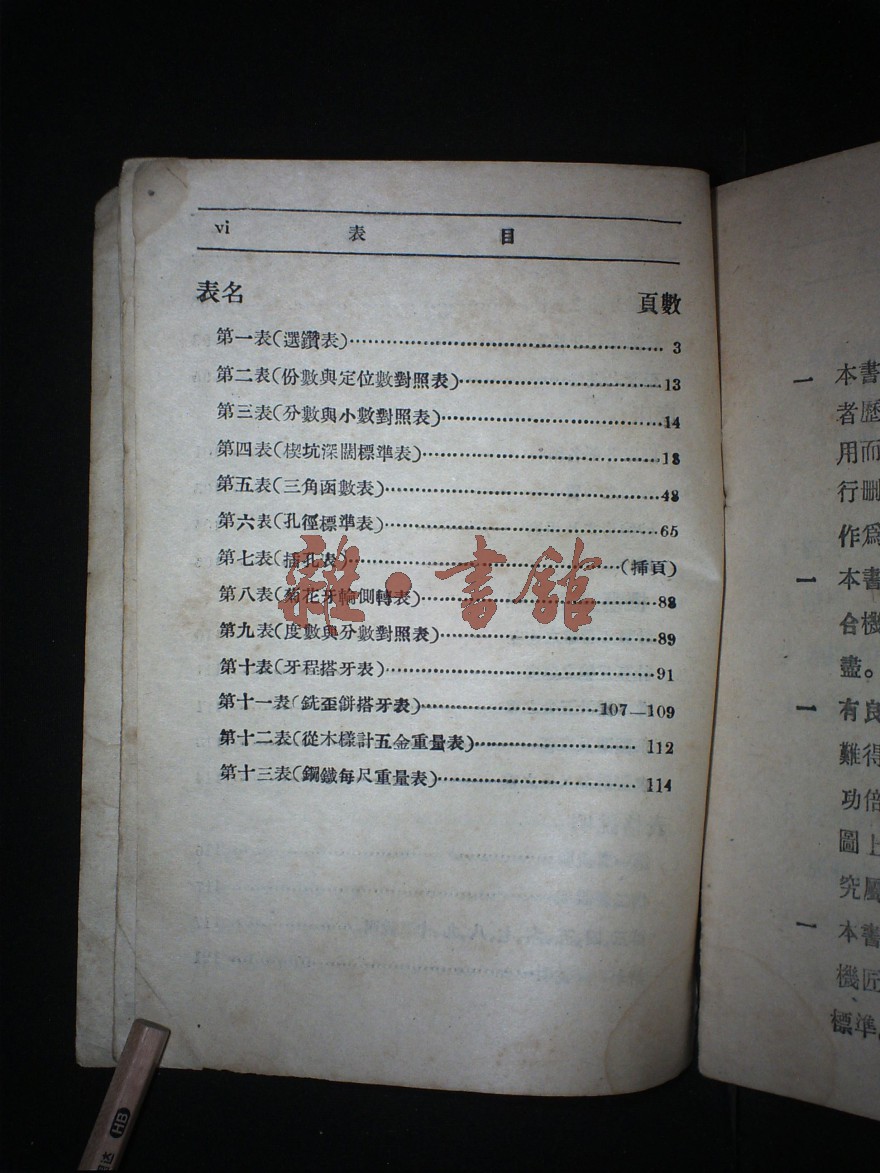 vi 表 目
表名 頁數
第一表(選鑽表)⋯⋯3
第二表(份數與定位數對照表)⋯⋯13
第三表(分數與小數對照表)⋯⋯14
第四表(楔坑深闊標準表)⋯⋯18
第五表(三角函數表)⋯⋯48
第六表(孔徑標準表)⋯⋯65
第七表(插孔表)⋯⋯(挿頁)
第八表(菊花牙輪側轉表)⋯⋯88
第九表(度數與分數對照表)⋯⋯89
第十表(牙程搭牙表)⋯⋯91
第十一表(銑歪餅搭牙表)⋯⋯107—109
第十二表(從木樣計五金重量表)⋯⋯112
第十三表(鋼鐵每尺重量表)⋯⋯114
雜·書館
一 本書
者歷
用而
行刪
作爲
一 本書
合機
盡。
一 有良
難得
功倍
圖上
究屬
一 本書
機匠
標準。
HB